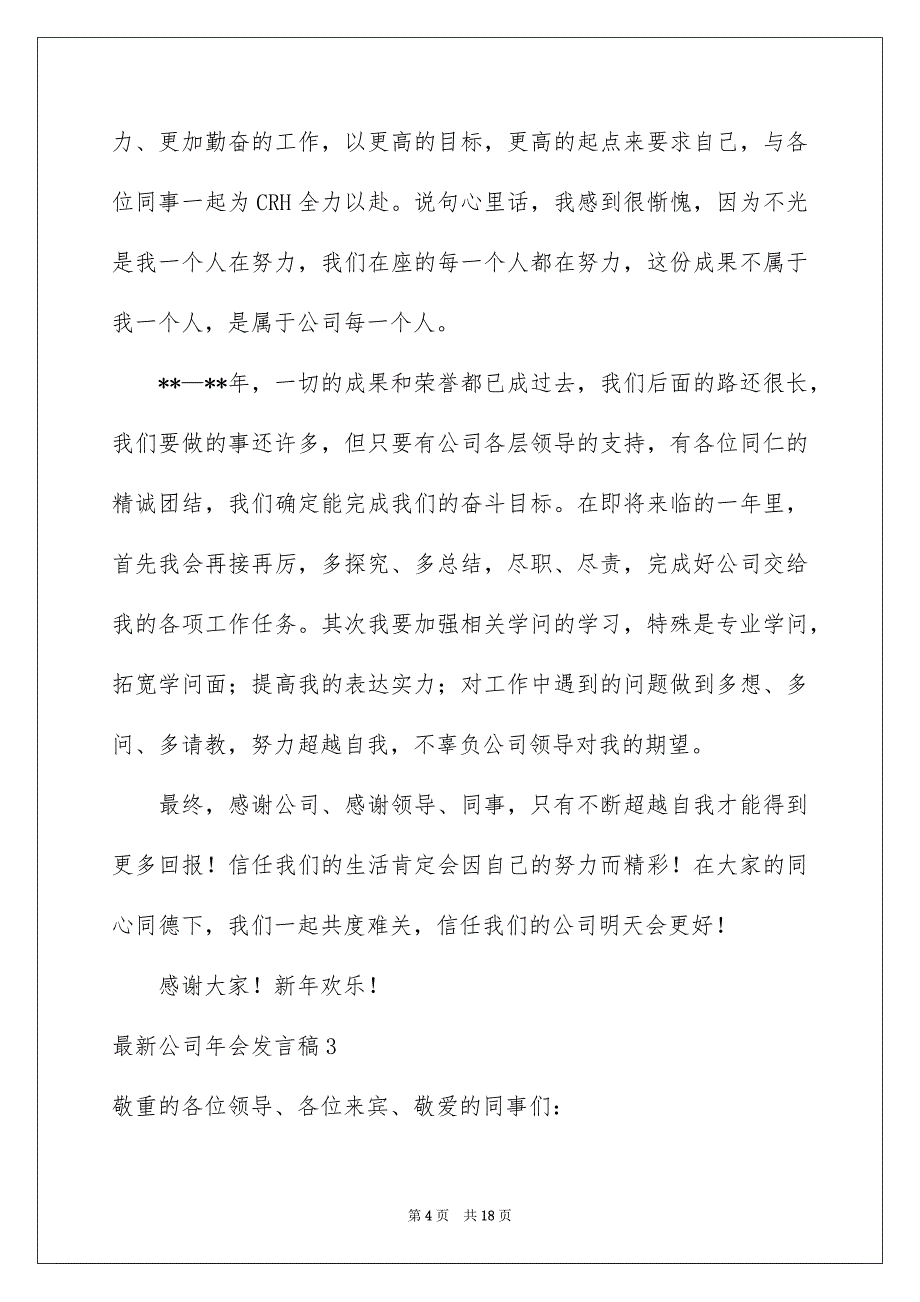 力、更加勤奋的工作，以更高的目标，更高的起点来要求自己，与各
位同事一起为 CRH 全力以赴。说句心里话，我感到很惭愧，因为不光
是我一个人在努力，我们在座的每一个人都在努力，这份成果不属于
我一个人，是属于公司每一个人。
**—**年，一切的成果和荣誉都已成过去，我们后面的路还很长，
我们要做的事还许多，但只要有公司各层领导的支持，有各位同仁的
精诚团结，我们确定能完成我们的奋斗目标。在即将来临的一年里，
首先我会再接再厉，多探究、多总结，尽职、尽责，完成好公司交给
我的各项工作任务。其次我要加强相关学问的学习，特殊是专业学问，
拓宽学问面；提高我的表达实力；对工作中遇到的问题做到多想、多
问、多请教，努力超越自我，不辜负公司领导对我的期望。
最终，感谢公司、感谢领导、同事，只有不断超越自我才能得到
更多回报！信任我们的生活肯定会因自己的努力而精彩！在大家的同
心同德下，我们一起共度难关，信任我们的公司明天会更好！
感谢大家！新年欢乐！
最新公司年会发言稿 3
敬重的各位领导、各位来宾、敬爱的同事们：
第 4 页 共 18 页